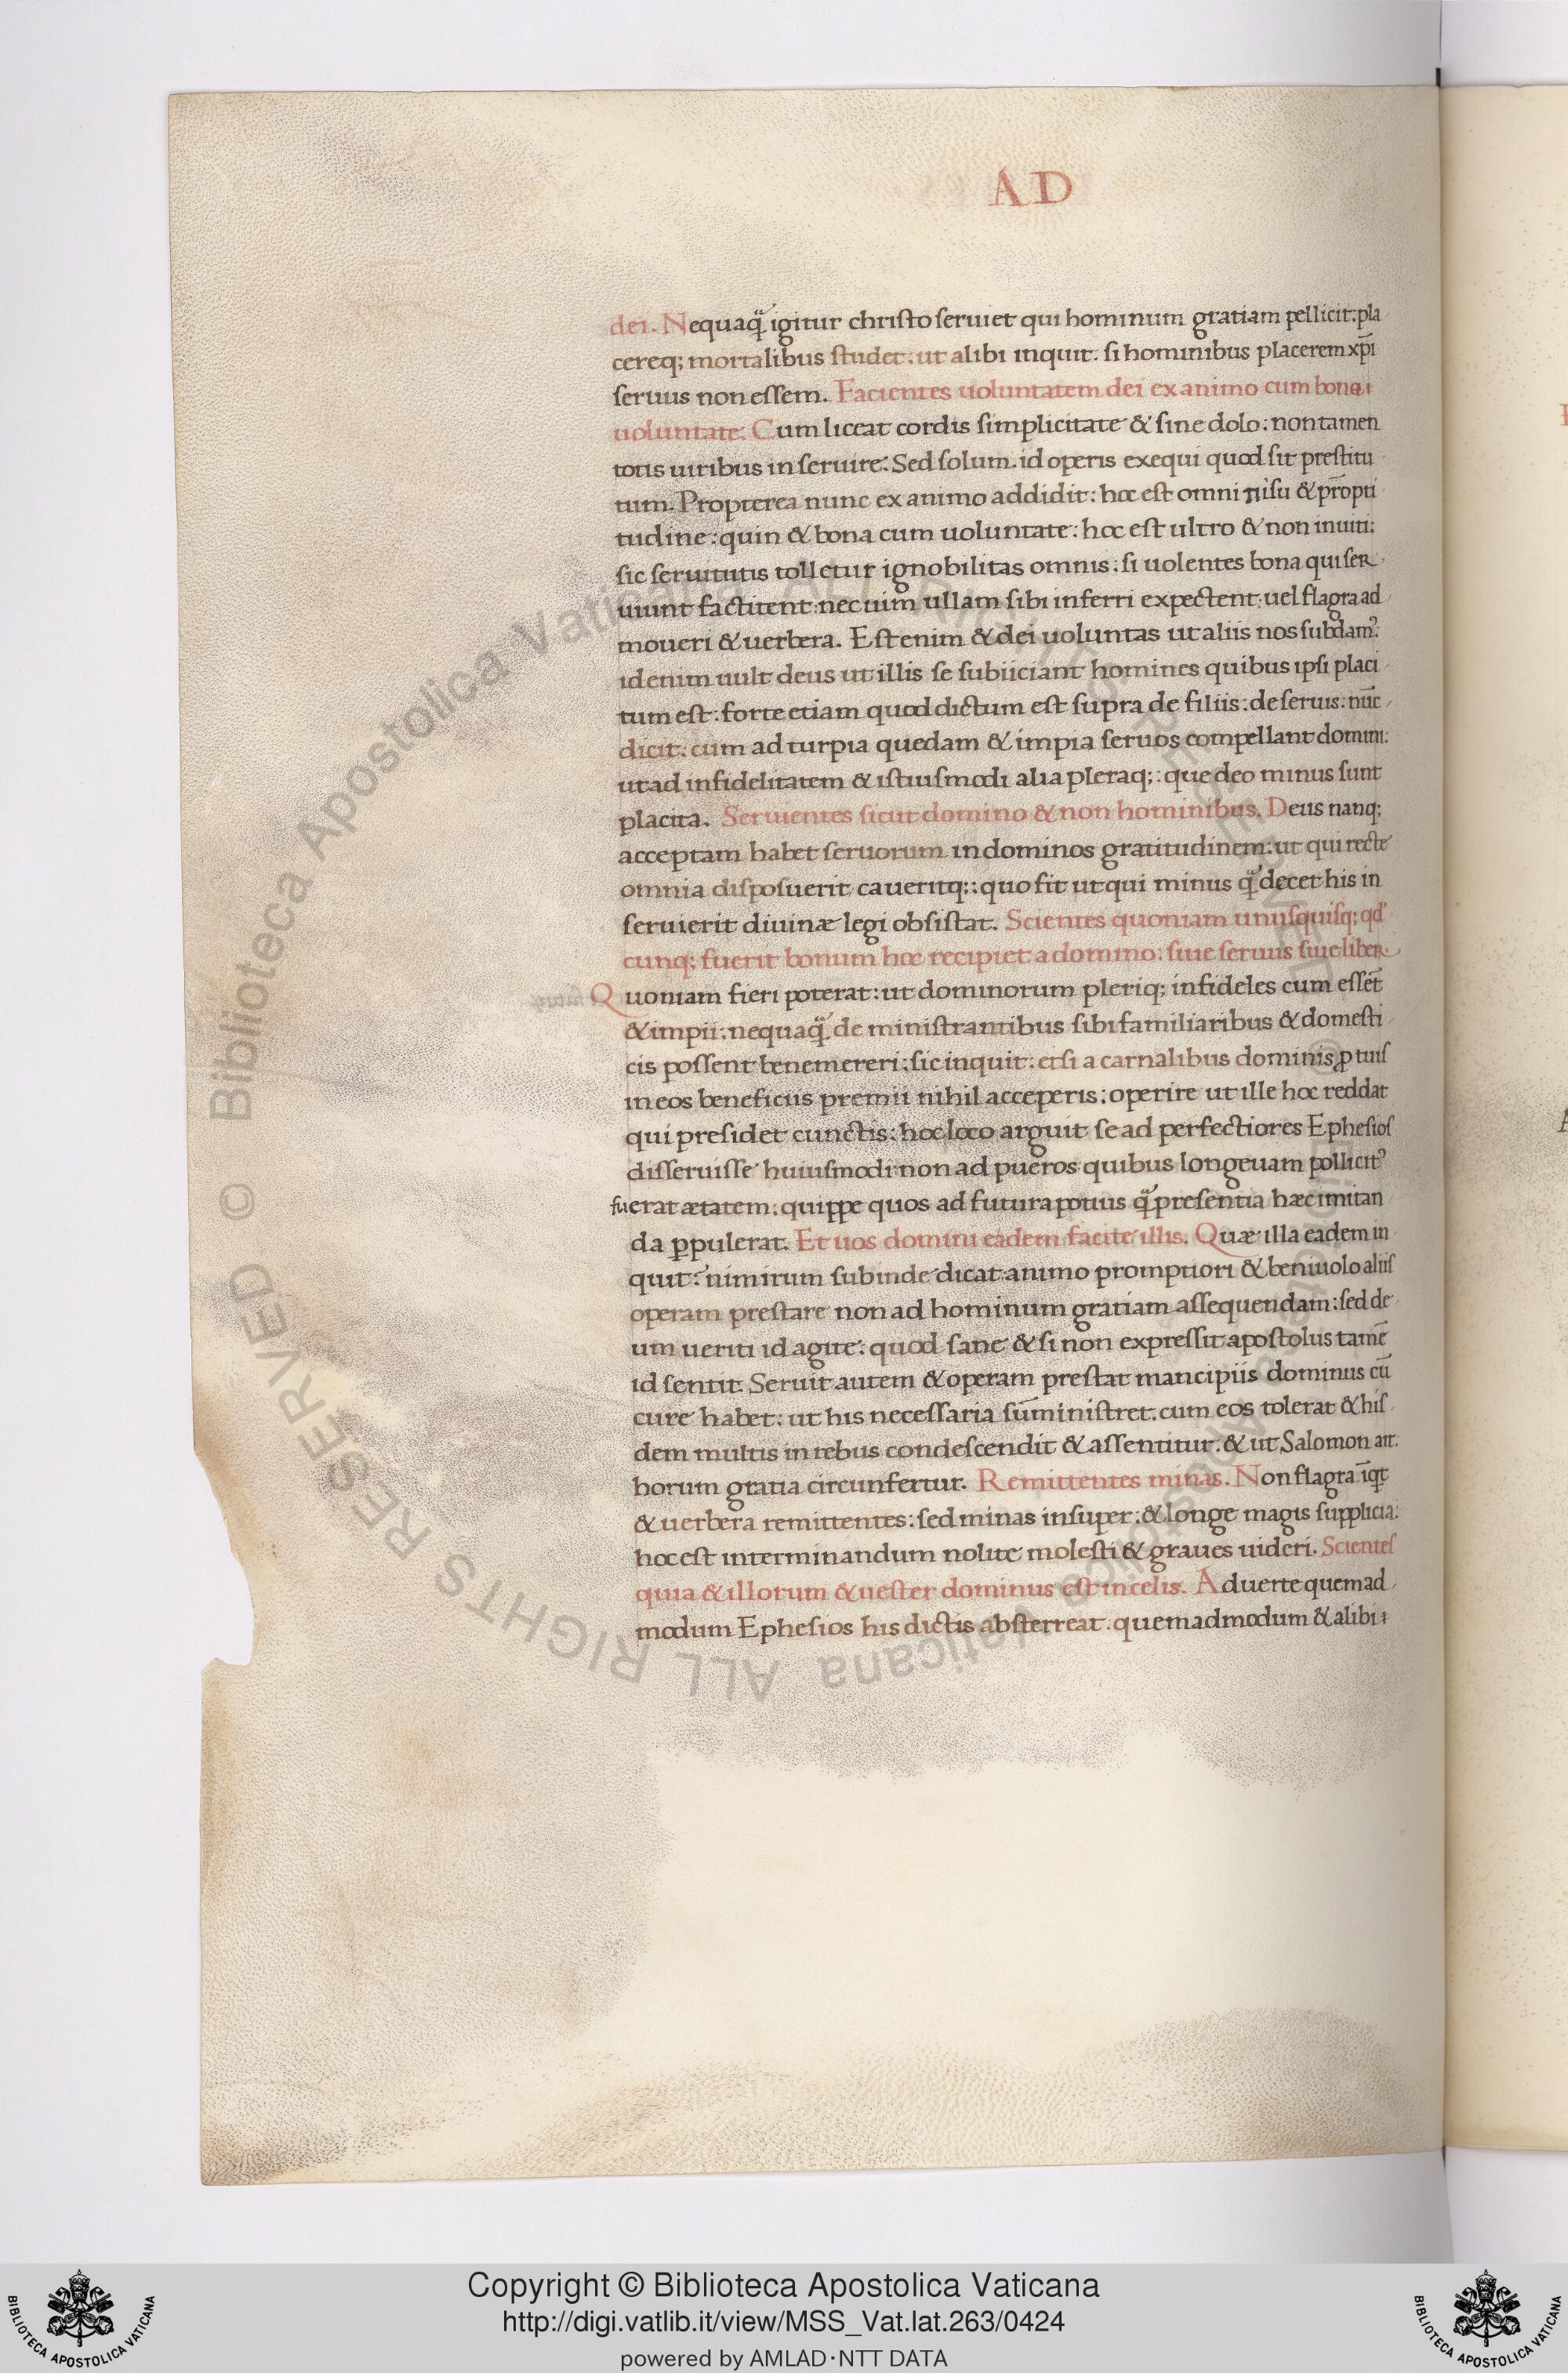 AD
dei. Nequaq̃ igitur christo seruiet qui hominum gratiam pellicit: pla
cereq; mortalibus studet: ut alibi inquit. si hominibus placerem xp̄i
seruus non essem. Facientes uoluntatem dei ex animo cum bona
uoluntate. Cum liceat cordis simplicitate & sine dolo: non tamen
totis uiribus inseruire. Sed solum. id operis exequi quod sit prestitu
tum. Propterea nunc ex animo addidit: hoc est omni nisu & pr̄opti
tudine: quin & bona cum uoluntate: hoc est ultro & non inuiti:
sic seruitutis tolletur ignobilitas omnis: si uolentes bona qui ser
uiunt factitent: nec uim ullam sibi inferri expectent: uel flagra ad
moueri & uerbera. Est enim & dei uoluntas ut aliis nos subdamꝰ.
id enim uult deus ut illis se subiiciant homines quibus ipsi placi
tum est: forte etiam quod dictum est supra de filiis: de seruis: nūc
dicit: cum ad turpia quedam & impia seruos compellant domini:
ut ad infidelitatem & istiusmodi alia pleraq;: que deo minus sunt
placita. Seruientes sicut domino & non hominibus. Deus nanq;
acceptam habet seruorum in dominos gratitudinem: ut qui recte
omnia disposuerit caueritq;: quo fit ut qui minus q̃ decet his in
seruierit diuinæ legi obsistat. Scientes quoniam unusquisq; qd'
cunq; fuerit bonum hoc recipiet a domino: siue seruus siue liber.
Quoniam fieri poterat: ut dominorum pleriq; infideles cum essēt
& impii: nequaq̃ de ministrantibus sibi familiaribus & domesti
cis possent benemereri: sic inquit: etsi a carnalibus dominis ꝓ tuis
in eos beneficiis premii nihil acceperis: operire ut ille hoc reddat
qui presidet cunctis: hoc loco arguit se ad perfectiores Ephesios
disseruisse huiusmodi: non ad pueros quibus longeuam pollicitꝰ
fuerat ætatem: quippe quos ad futura potius q̃ presentia hæc imitan
da ꝑpulerat. Et uos domini eadem facite illis. Quæ illa eadem in
quit? nimirum subinde dicat animo promptiori & beniuolo aliis
operam prestare non ad hominum gratiam assequendam: sed de
um ueriti id agite: quod sane & si non expressit apostolus tamē
id sentit. Seruit autem & operam prestat mancipiis dominus cū
cure habet: ut his necessaria sūministret. cum eos tolerat & his
dem multis in rebus condescendit & assentitur: & ut Salomon ait.
horum gratia circunfertur. Remittentes minas. Non flagra īqt
& uerbera remittentes: sed minas insuper: & longe magis supplicia:
hoc est interminandum nolite molesti & graues uideri. Scientes
quia & illorum & uester dominus est in celis. Aduerte quemad
modum Ephesios his dictis absterreat. quemadmodum & alibi
Copyright © Biblioteca Apostolica Vaticana
http://digi.vatlib.it/view/MSS_Vat.lat.263/0424
powered by AMLAD·NTT DATA